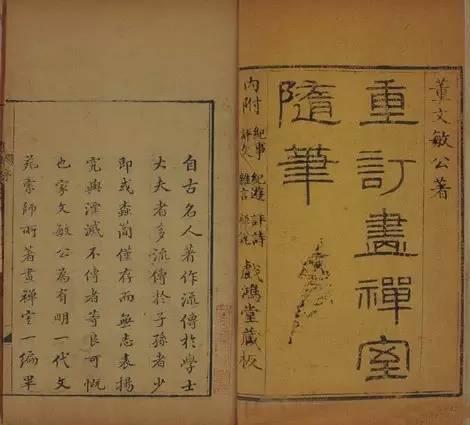 董文敏公著
重訂畫禪室
隨筆
內附 紀事 紀遊 評詩
評文 雜言
戲鴻堂藏板
自古名人著作流傳於學士
大夫者多流傳於子孫者少
即或蠹簡僅存而無志表揚
究與湮滅不傳者等良可慨
也家文敏公為有明一代文
苑宗師所著畫禪室一編畢